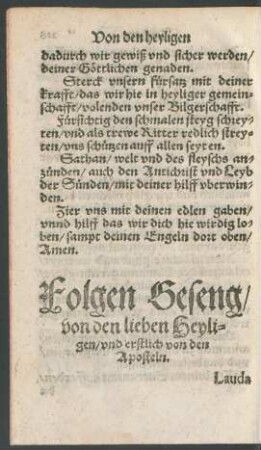 Von den heyligen
dadurch wir gewiß vnd sicher werden/
deiner Göttlichen genaden.
Sterck vnsern fürsatz mit deiner
krafft/das wir hie in heyliger gemein-
schafft/volenden vnser Bilgerschafft.
Fürsichtig den schmalen steyg schrey-
ten/vnd als trewe Ritter redlich strey-
ten/vns schützen auff allen seyten.
Sathan/welt vnd des fleyschs an-
zünden/auch den Antichrist vnd Leyb
der Sünden/mit deiner hilff vberwin-
den.
Zier vns mit deinen edlen gaben/
vnnd hilff das wir dich hie wirdig lo-
ben/sampt deinen Engeln dort oben/
Amen.
Folgen Geseng/
von den lieben Heyli-
gen/vnd erstlich von den
Aposteln.
Lauda